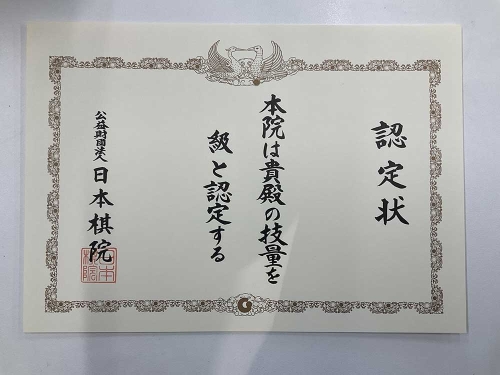 認定状
本院は貴殿の技量を
級と認定する
公益財団法人 日本棋院